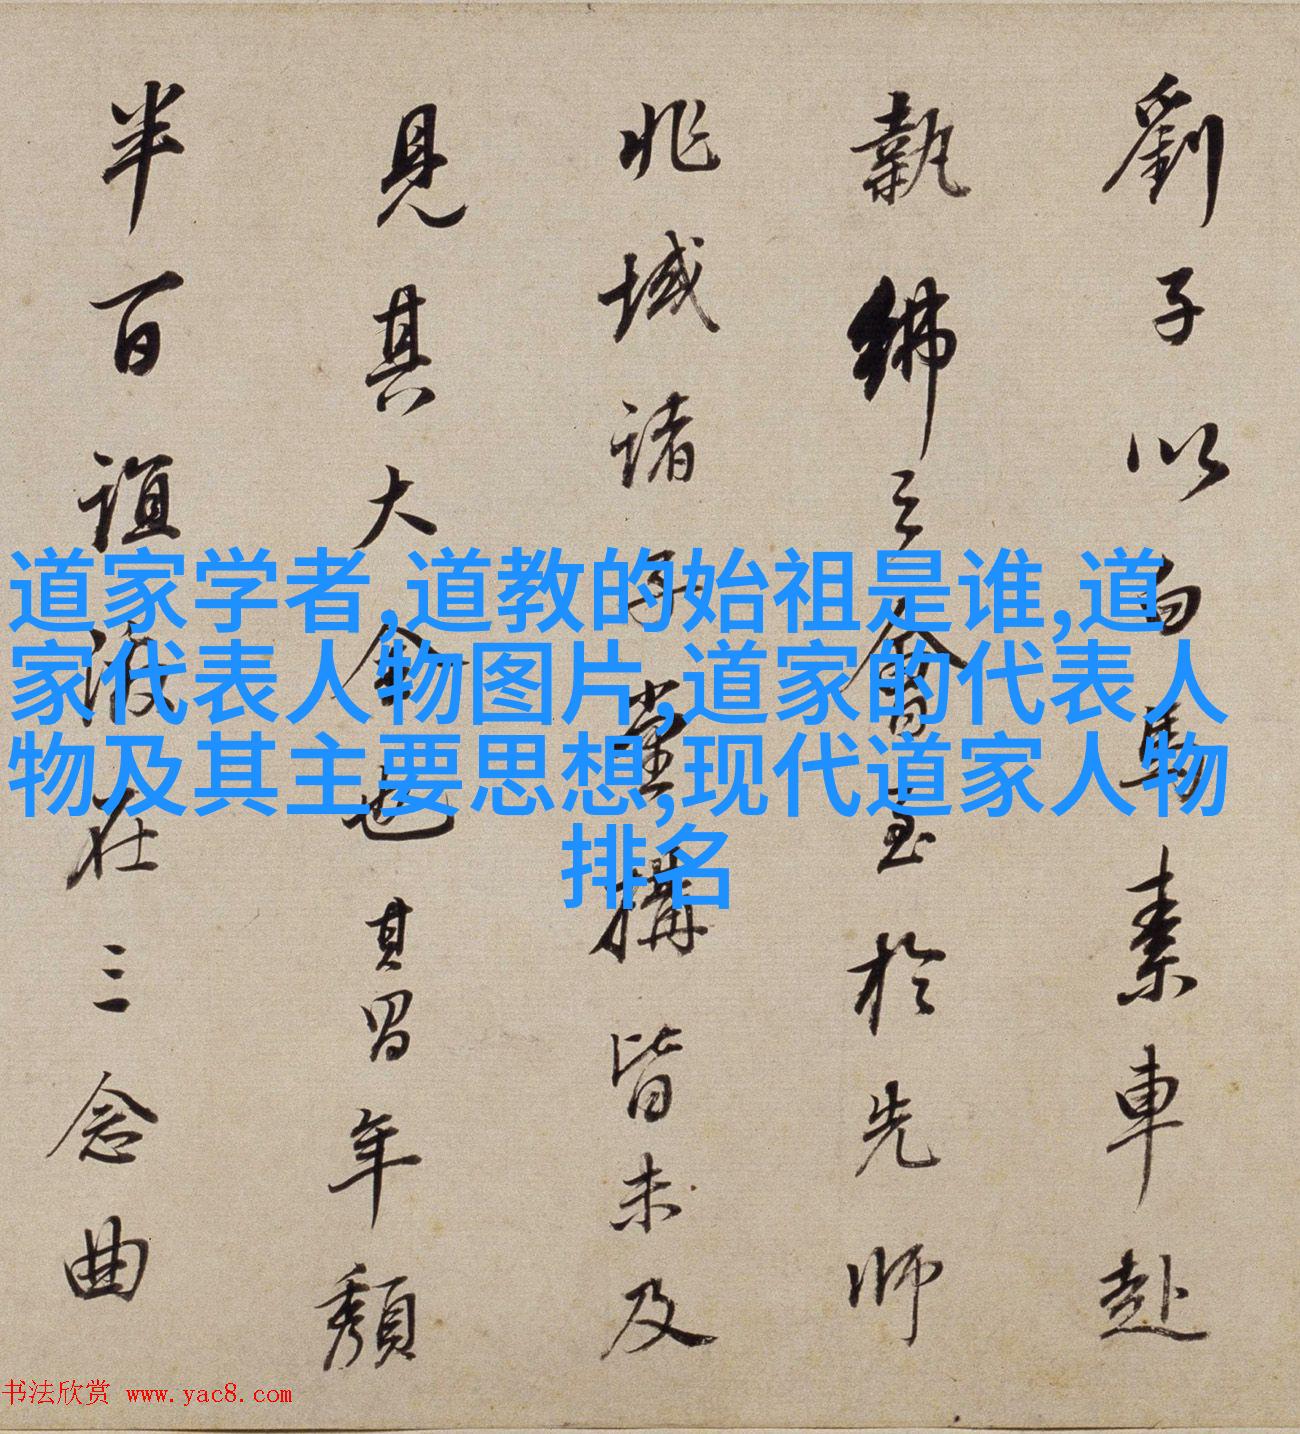 劉子以白馬素車赴
執紼之會至於先師
兆域諸子堂構皆未及
見其大全也其習年頹
半百誼激在三念曲
道家学者,道教的始祖是谁,道
家代表人物图片,道家的代表人
物及其主要思想,现代道家人物
排名
书法欣赏 www.yac8.com